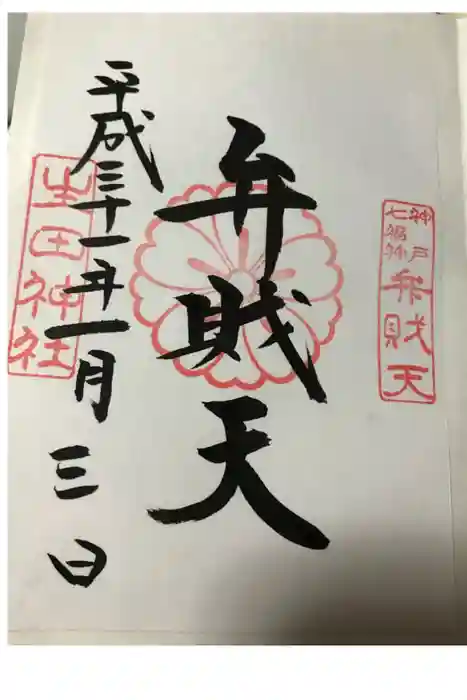 神戸
七福神
弁財天
弁財天
平成三十一年一月三日
生田神社